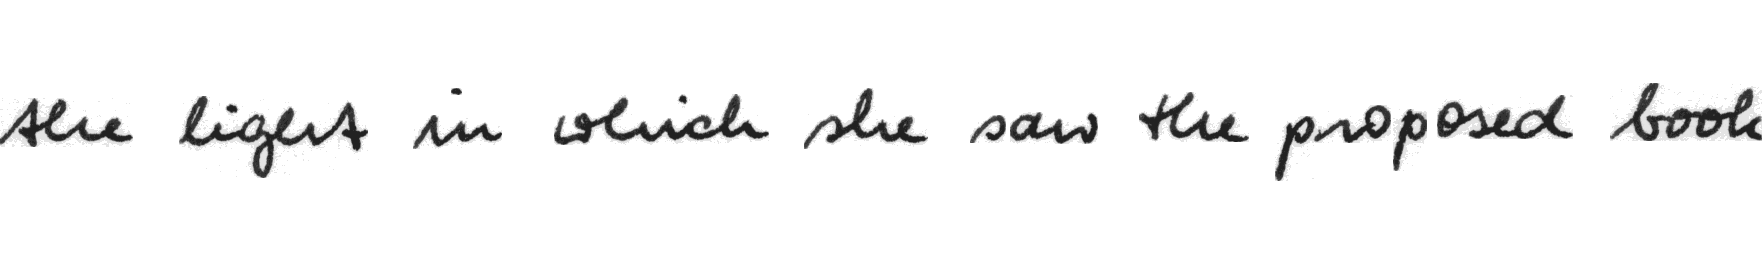 the light in which she saw the proposed book